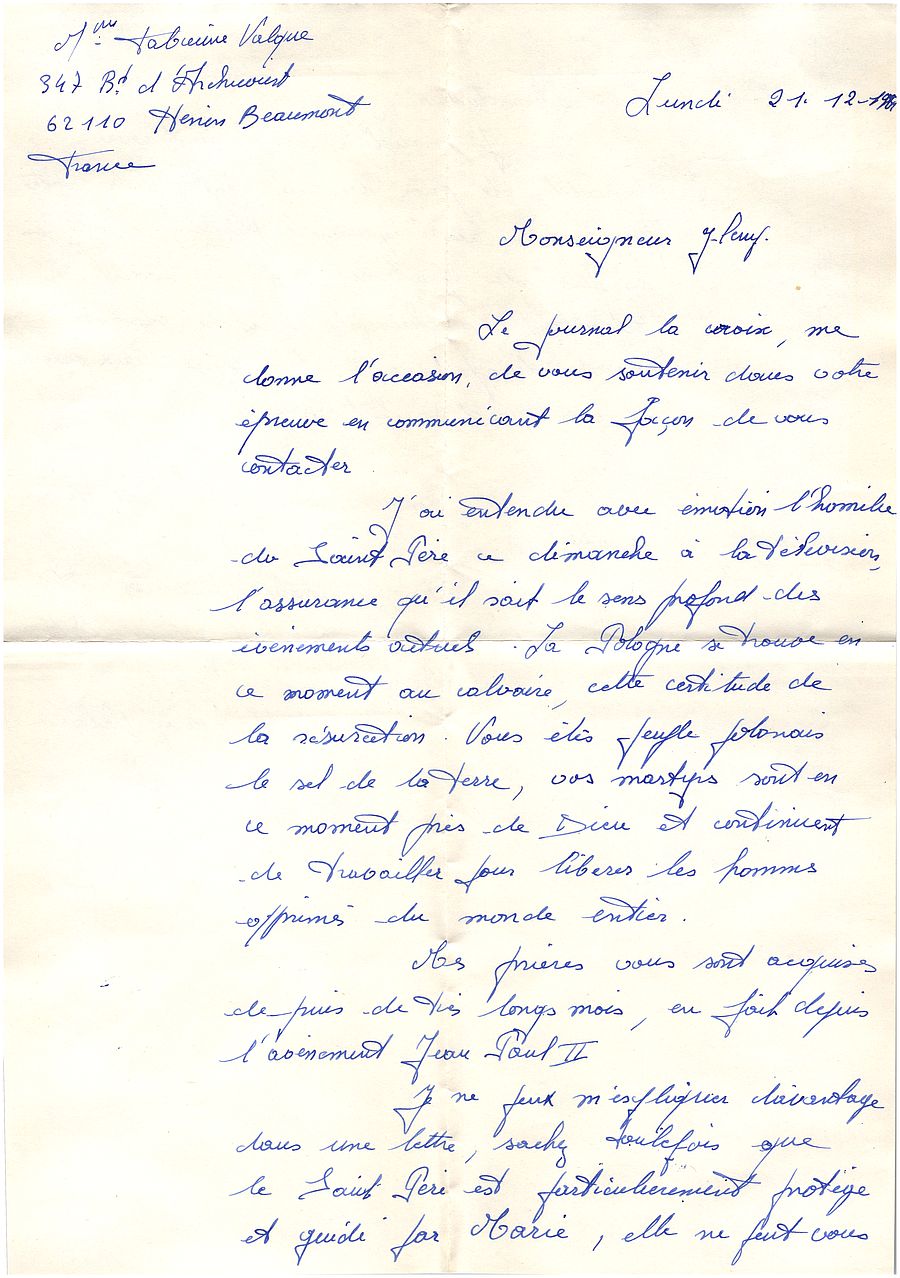 Mme Fabienne Valque
347 Bd d'
62110 Henin Beaumont
France
Lundi 21. 12-
Monseigneur
Le journal la croix, me
donne l'occasion, de vous soutenir dans votre
épreuve en communicant la façon de vous
contacter
J'ai entendu avec émotion l'homelie
du Saint Père ce dimanche à la télévision,
l'assurance qu'il sait le sens profond des
évènements actuels. La Pologne se trouve en
ce moment au calvaire, cette certitude de
la résurection. Vous êtes peuple polonais
le sel de la terre, vos martyrs sont en
ce moment près de Dieu et continuent
de travailler pour libérer les hommes
opprimés du monde entier.
Mes prières vous sont acquises
depuis de très longs mois, en fait depuis
l'avènement Jean Paul II
Je ne peux m'expliquer davantage
dans une lettre, sachez toutefois que
le Saint Père est particulièrement protégé
et guidé par Marie, elle ne peut vous